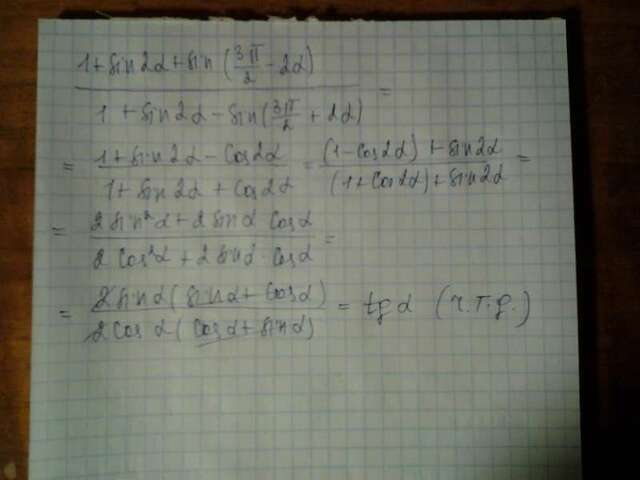 1 + sin2α + sin(3π/2 - 2α)
1 + sin2α - sin(3π/2 + 2α) =
= 1 + sin2α - cos2α / 1 + sin2α + cos2α = (1 - cos2α) + sin2α / (1 + cos2α) + sin2α =
= 2sin²α + 2sinα cosα / 2cos²α + 2sinα · cosα =
= 2sinα(sinα + cosα) / 2cosα(cosα + sinα) = tgα (ч.т.д.)